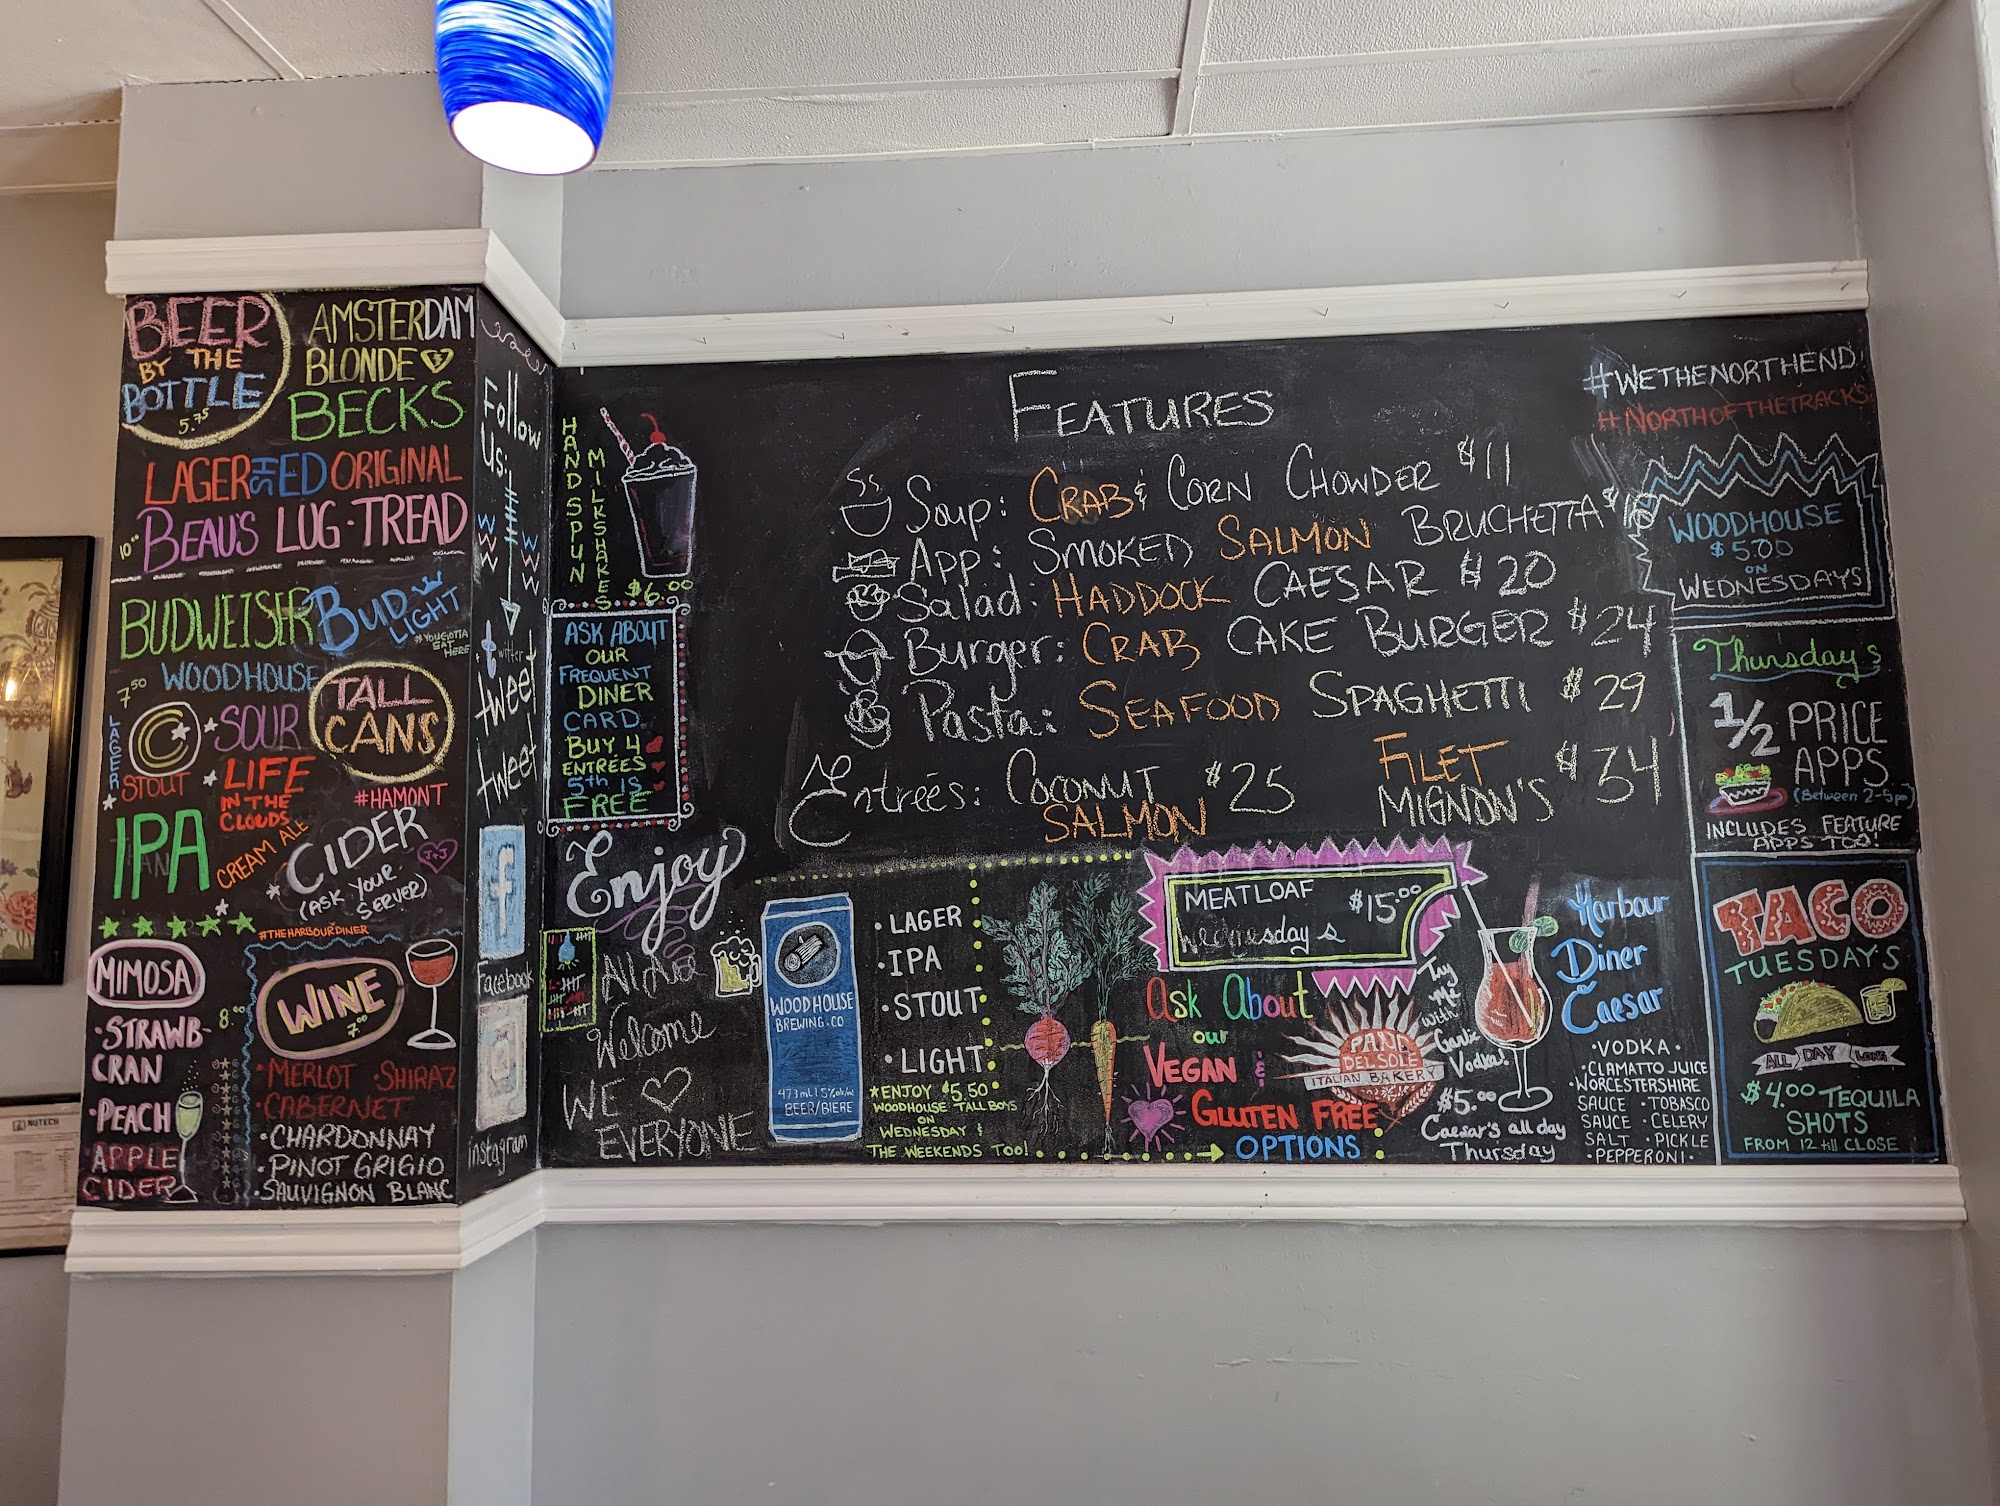 BEER
BY THE
BOTTLE
5.75
AMSTERDAM
BLONDE
BECKS
LAGERSHED ORIGINAL
10.00 BEAU'S LUG·TREAD
BUDWEISER BUD LIGHT
#YOUGOTTA
EAT
HERE
7.50 WOODHOUSE
TALL
CANS
LAGER
C
SOUR
STOUT
LIFE
IN THE
CLOUDS
IPA
CREAM ALE
#HAMONT
CIDER
(ASK YOUR
SERVER)
J+J
#THEHARBOURDINER
MIMOSA
8.00
·STRAWB-
CRAN
·PEACH
·APPLE
CIDER
WINE
7.00
·MERLOT ·SHIRAZ
·CABERNET
·CHARDONNAY
·PINOT GRIGIO
·SAUVIGNON BLANC
Follow
Us:
twitter
tweet
tweet
f
Facebook
instagram
HAND SPUN
MILKSHAKES
$6.00
ASK ABOUT
OUR
FREQUENT
DINER
CARD.
BUY 4
ENTRÉES
5th IS
FREE
Enjoy
Welcome
WE ♡
EVERYONE
FEATURES
Soup: CRAB & CORN CHOWDER $11
App: SMOKED SALMON BRUCHETTA
Salad: HADDOCK CAESAR $20
Burger: CRAB CAKE BURGER $24
Pasta: SEAFOOD SPAGHETTI $29
Entrées: COCONUT
SALMON
$25
FILET
MIGNON'S
$34
WOODHOUSE
BREWING.CO
BEER/BIERE
·LAGER
·IPA
·STOUT
·LIGHT
*ENJOY $5.50
WOODHOUSE TALL BOYS
ON
WEDNESDAY &
THE WEEKENDS TOO!
MEATLOAF $15.00
Wednesday's
Ask About
our
VEGAN &
GLUTEN FREE
OPTIONS
PANE
DEL SOLE
ITALIAN BAKERY
Try
Me
with
Garlic
Vodka!
$5.00
Caesar's all day
Thursday
Harbour
Diner
Caesar
·VODKA·
·CLAMATTO JUICE
·WORCESTERSHIRE
SAUCE ·TOBASCO
SAUCE ·CELERY
SALT ·PICKLE
·PEPPERONI·
#WETHENORTHEND
#NORTHOFTHETRACKS
WOODHOUSE
$5.00
ON
WEDNESDAYS
Thursdays
1/2 PRICE
APPS
(Between 2-5pm)
INCLUDES FEATURE
APPS TOO!
TACO
TUESDAYS
ALL DAY LONG
$4.00 TEQUILA
SHOTS
FROM 12 till CLOSE
NUTECH